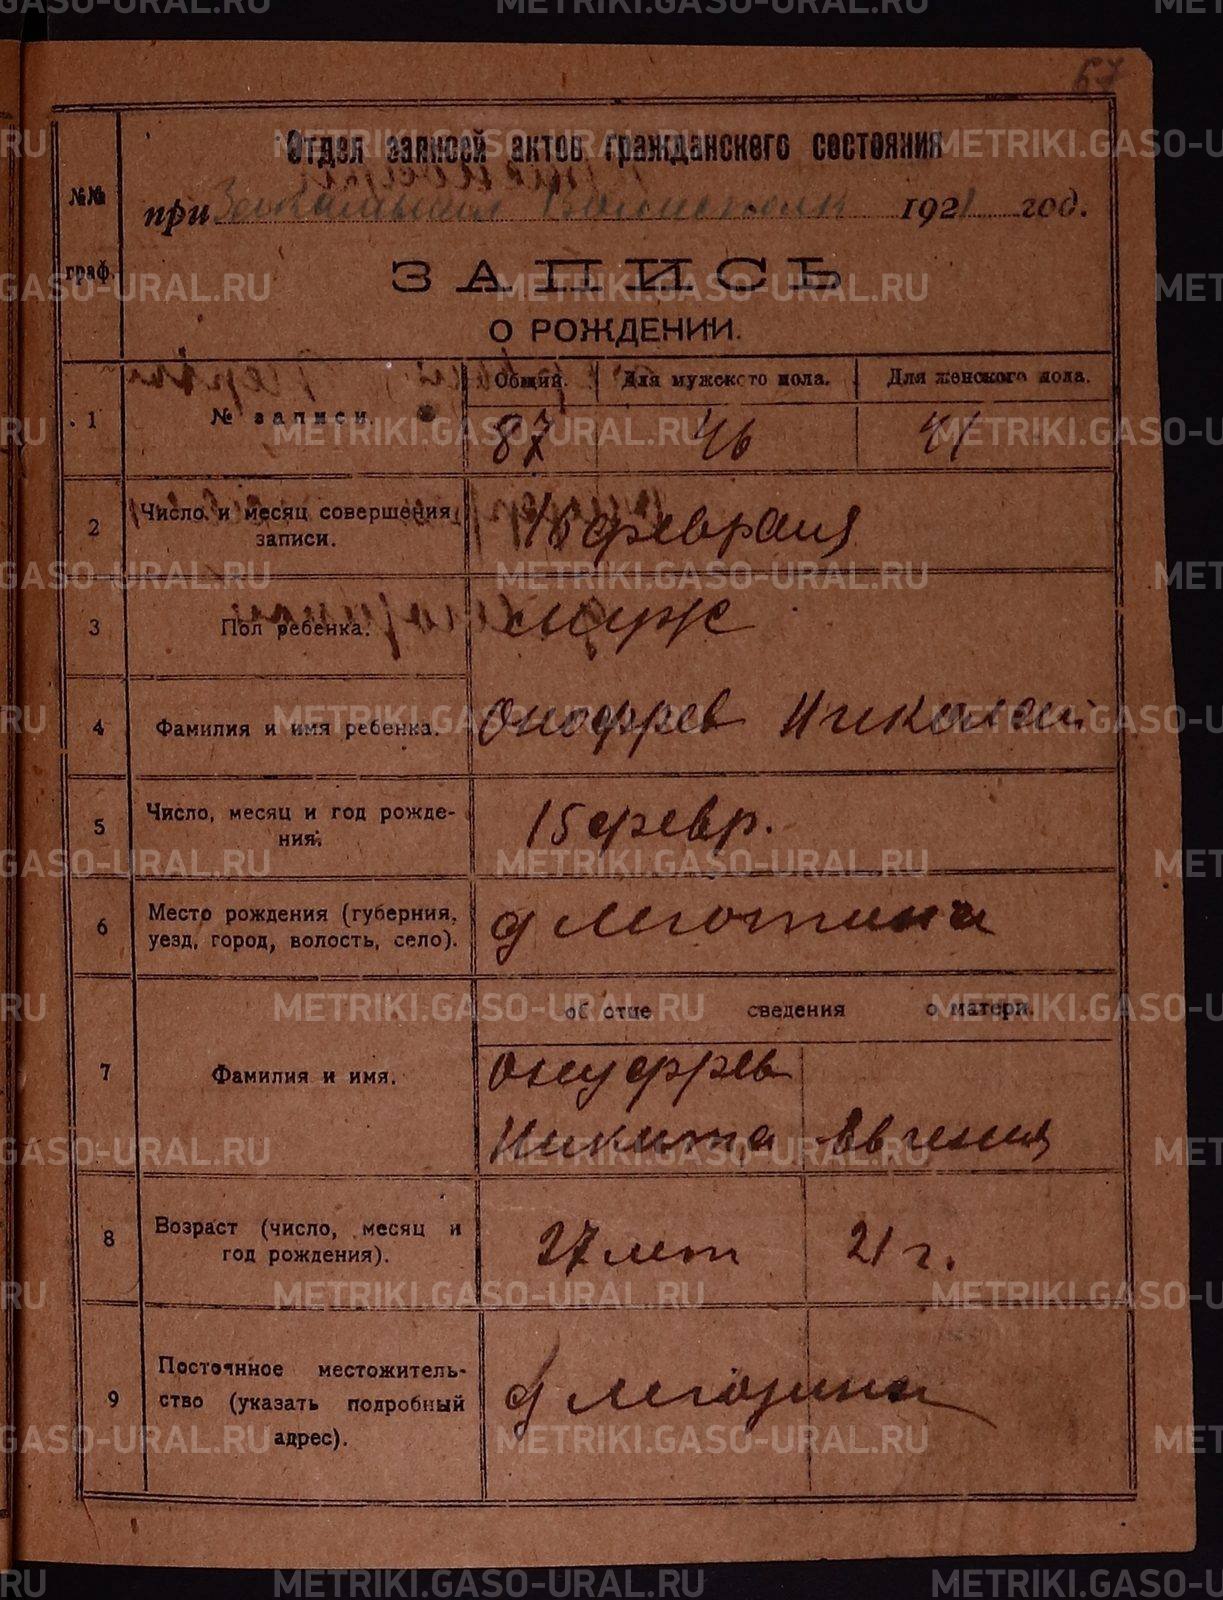 57
Отдел записей актов гражданского состояния
при Зайковском Волисполк 1921 год.
№№ граф.
ЗАПИСЬ
О РОЖДЕНИИ.
Общий. Для мужского пола. Для женского пола.
1 № записи. 87 46 41
2 Число и месяц совершения записи. 16 февраля
3 Пол ребенка. муж
4 Фамилия и имя ребенка. Онофрев Николай
5 Число, месяц и год рождения. 15 февр.
6 Место рождения (губерния, уезд, город, волость, село). д
об отце сведения о матери.
7 Фамилия и имя. Онуфрев
Никита Евгения
8 Возраст (число, месяц и год рождения). 27 лет 21 г.
9 Постоянное местожительство (указать подробный адрес). д
METRIKI.GASO-URAL.RU